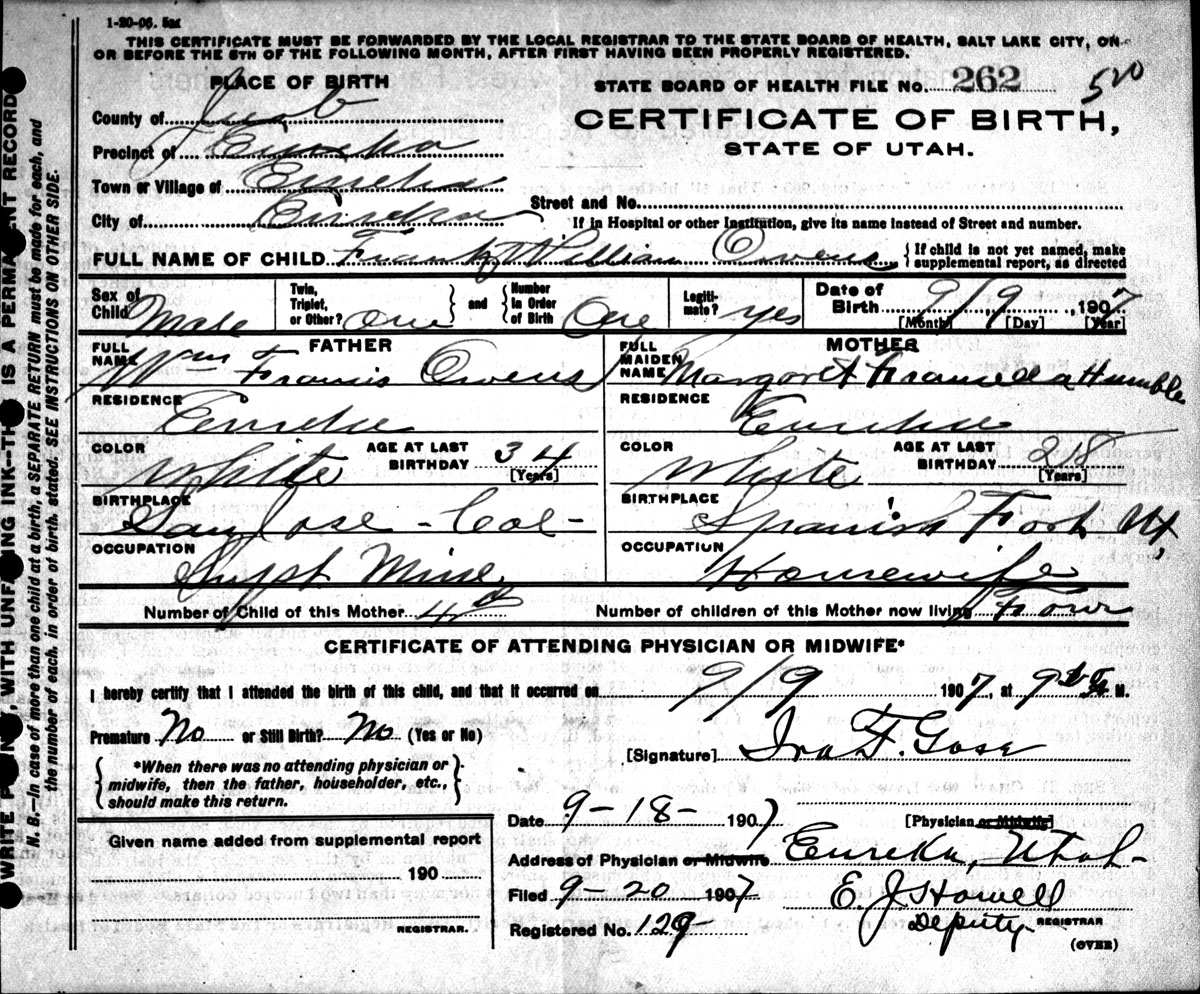 1-20-06. 5m
THIS CERTIFICATE MUST BE FORWARDED BY THE LOCAL REGISTRAR TO THE STATE BOARD OF HEALTH, SALT LAKE CITY, ON
OR BEFORE THE 5TH OF THE FOLLOWING MONTH, AFTER FIRST HAVING BEEN PROPERLY REGISTERED.
PLACE OF BIRTH
STATE BOARD OF HEALTH FILE NO. 262
County of Juab
CERTIFICATE OF BIRTH,
Precinct of Eureka
STATE OF UTAH.
Town or Village of Eureka
Street and No.
City of Eureka
If in Hospital or other Institution, give its name instead of Street and number.
FULL NAME OF CHILD Frank William Owens { If child is not yet named, make supplemental report, as directed
Sex of Child Male
Twin, Triplet, or Other? One } and { Number in Order of Birth One
Legitimate? yes
Date of Birth 9/9, 1907
[Month] [Day] [Year]
FATHER
MOTHER
FULL NAME Wm Francis Owens
FULL MAIDEN NAME Margaret Humble
RESIDENCE
Eureka
RESIDENCE
Eureka
COLOR White AGE AT LAST BIRTHDAY 34 [Years]
COLOR White AGE AT LAST BIRTHDAY 28 [Years]
BIRTHPLACE
San Jose - Cal -
BIRTHPLACE
Spanish Fork Ut,
OCCUPATION
Supt Mine
OCCUPATION
Housewife
Number of Child of this Mother 4th
Number of children of this Mother now living Four
CERTIFICATE OF ATTENDING PHYSICIAN OR MIDWIFE*
I hereby certify that I attended the birth of this child, and that it occurred on 9/9 1907, at 9 M.
Premature No or Still Birth? No (Yes or No)
[Signature] Ira F. Gose
{ *When there was no attending physician or midwife, then the father, householder, etc., should make this return. }
Date 9-18- 1907
[Physician or Midwife]
Given name added from supplemental report
190
REGISTRAR.
Address of Physician or Midwife Eureka, Utah-
Filed 9-20 1907 E. J. Howell
Registered No. 129 Deputy REGISTRAR
(OVER)
WRITE PLAINLY WITH UNFADING INK--THIS IS A PERMANENT RECORD
N. B.—In case of more than one child at a birth, a SEPARATE RETURN must be made for each, and
the number of each, in order of birth, stated. SEE INSTRUCTIONS ON OTHER SIDE.